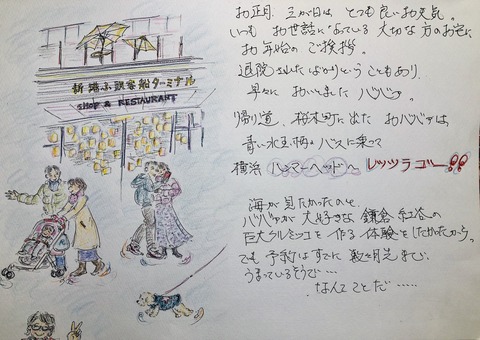 新港ふ頭客船ターミナル
SHOP & RESTAURANT
お正月 三が日は とても良いお天気。
いつも お世話になっている 大切な方のお宅に
お年始の ご挨拶。
退院されたばかりということもあり、
早々に おいとましました ババァ。
帰り道、桜木町に出た おババァは、
青い水玉柄のバスに乗って
横浜 ハンマーヘッドへ レッツラゴー!!
海が見たかったのと、
ババァが大好きな 鎌倉紅谷の
巨大クルミッコを作る体験をしたかったから。
でも 予約はすでに 数ヶ月先まで
うまっているそうで…
なんてことだ……